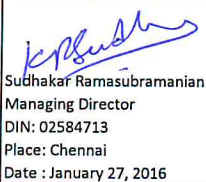 Sudhakar Ramasubramanian
Managing Director
DIN: 02584713
Place: Chennai
Date : January 27, 2016